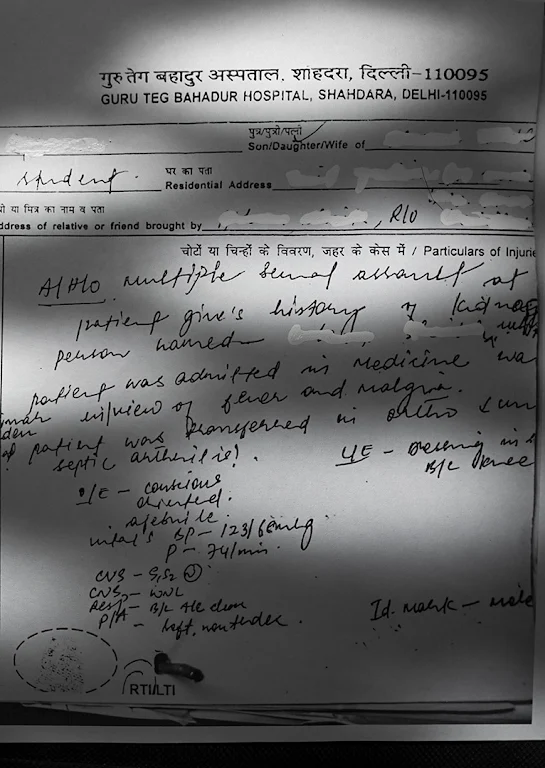 गुरु तेग बहादुर अस्पताल, शाहदरा, दिल्ली-110095
GURU TEG BAHADUR HOSPITAL, SHAHDARA, DELHI-110095
पुत्र/पुत्री/पत्नी
Son/Daughter/Wife of
student.
घर का पता
Residential Address
यो या मित्र का नाम व पता
ddress of relative or friend brought by , R/O
चोटों या चिन्हों के विवरण, जहर के केस में / Particulars of Injurie
A/H/O multiple sexual assault at
patient give's history of Kidnap
person named
patient was admitted in Medicine wa
in/view of fever and malgia.
patient was transferred in ortho
septic arthritis! L/E - Dressing in
B/L knee
O/E - conscious
oriented.
afebrile.
vital's BP - 123/68mmHg
P - 74/min.
CVS - S1S2
CNS - WNL
Resp - B/L AE clear
P/A - soft, nontender. Id. mark - mole
RTI/LTI